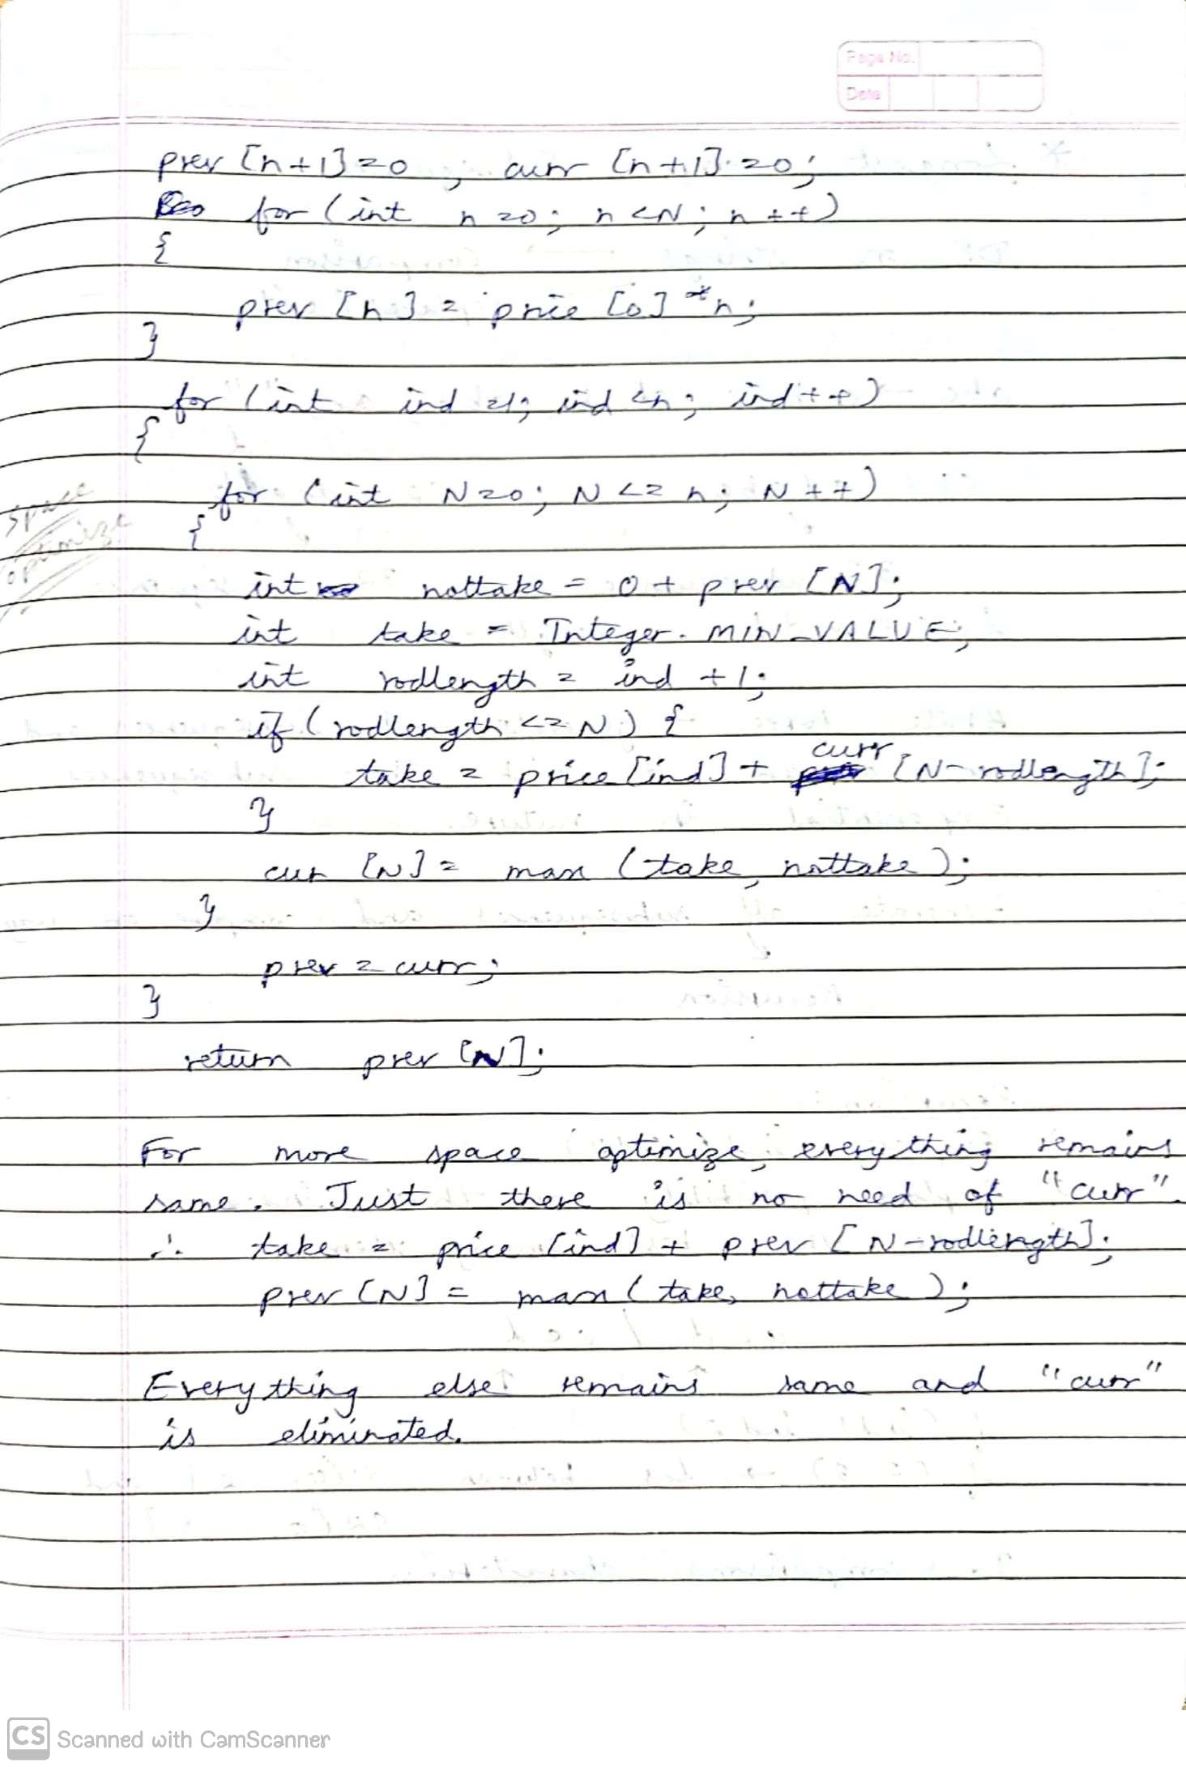 Page No.
Date
prev [n+1]=0 , curr [n+1]=0;
for (int n=0; n<N; n++)
{
prev [n] = price [0] *n;
}
for (int ind=1; ind<n; ind++)
{
for (int N=0; N<=n; N++)
space
optimize
{
int nottake = 0 + prev [N];
int take = Integer. MIN_VALUE;
int rodlength = ind +1;
if (rodlength <= N) {
take = price [ind] + curr [N-rodlength];
}
curr [N] = max (take, nottake);
}
prev = curr;
}
return prev [N];
For more space optimize, everything remains
same. Just there is no need of "curr".
∴ take = price [ind] + prev [N-rodlength];
prev [N] = max (take, nottake);
Everything else remains same and "curr"
is eliminated.
CS Scanned with CamScanner